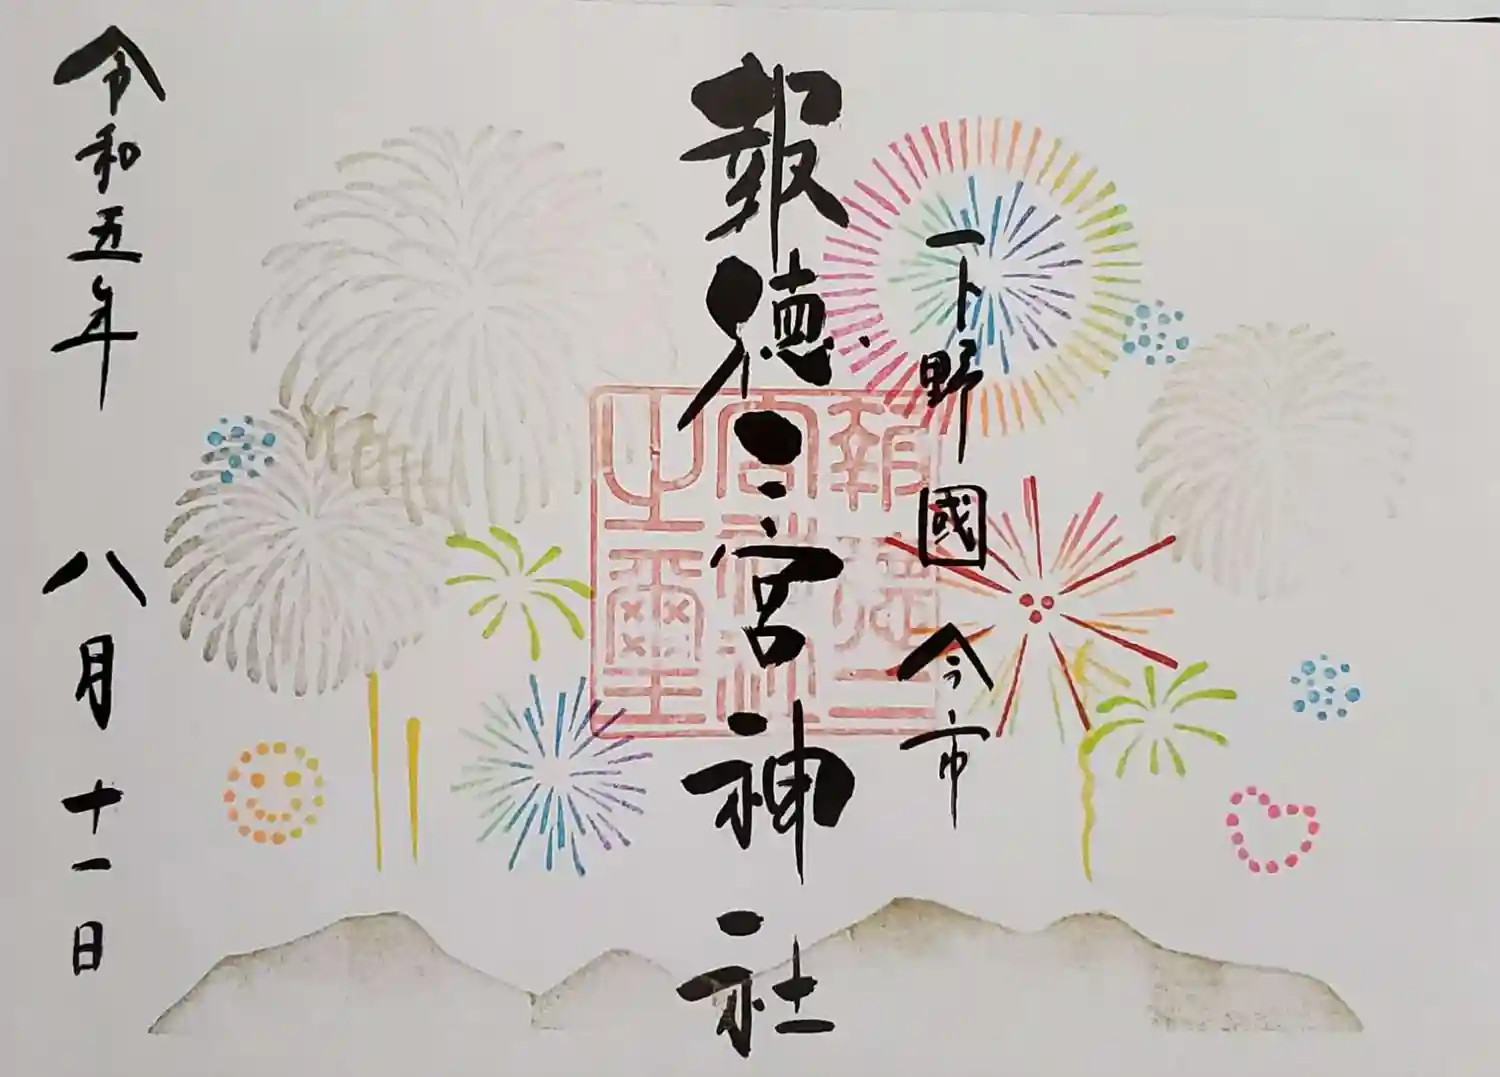 下野國今市
報徳二宮神社
報徳二宮神社之璽
令和五年八月十一日